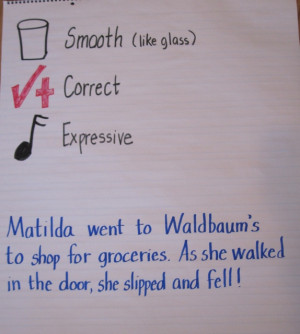 Smooth (like glass)
Correct
Expressive
Matilda went to Waldbaum's
to shop for groceries. As she walked
in the door, she slipped and fell!